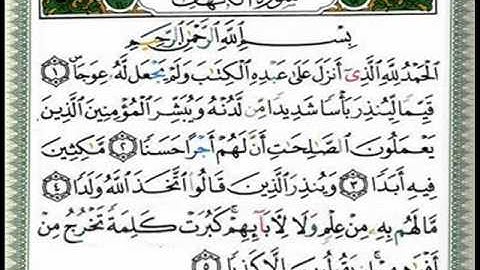 سورة الكهف
بِسْمِ ٱللَّهِ ٱلرَّحْمَٰنِ ٱلرَّحِيمِ
ٱلْحَمْدُ لِلَّهِ ٱلَّذِىٓ أَنزَلَ عَلَىٰ عَبْدِهِ ٱلْكِتَٰبَ وَلَمْ يَجْعَل لَّهُۥ عِوَجَاۜ ١
قَيِّمًا لِّيُنذِرَ بَأْسًا شَدِيدًا مِّن لَّدُنْهُ وَيُبَشِّرَ ٱلْمُؤْمِنِينَ ٱلَّذِينَ
يَعْمَلُونَ ٱلصَّٰلِحَٰتِ أَنَّ لَهُمْ أَجْرًا حَسَنًا ٢ مَّٰكِثِينَ
فِيهِ أَبَدًا ٣ وَيُنذِرَ ٱلَّذِينَ قَالُوا۟ ٱتَّخَذَ ٱللَّهُ وَلَدًا ٤
مَّا لَهُم بِهِۦ مِنْ عِلْمٍ وَلَا لِـَٔابَآئِهِمْ ۚ كَبُرَتْ كَلِمَةً تَخْرُجُ مِنْ